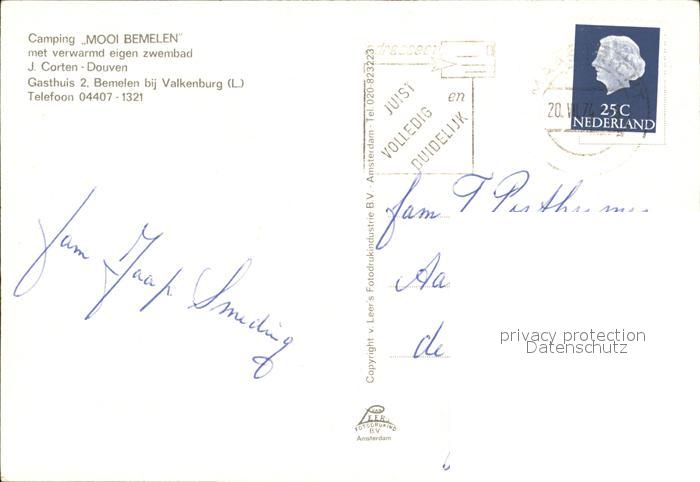 Camping „MOOI BEMELEN"
met verwarmd eigen zwembad
J. Corten - Douven
Gasthuis 2, Bemelen bij Valkenburg (L.)
Telefoon 04407 - 1321
JUIST
VOLLEDIG
en
DUIDELIJK
20. VII. 74
25 C
NEDERLAND
Copyright v. Leer's Fotodrukindustrie B.V. - Amsterdam - Tel. 020-823223
fam T Posthumus
Aa
de
fam Jaap Smeding
privacy protection
Datenschutz
VAN
LEER
FOTODRUKIND
B.V.
Amsterdam